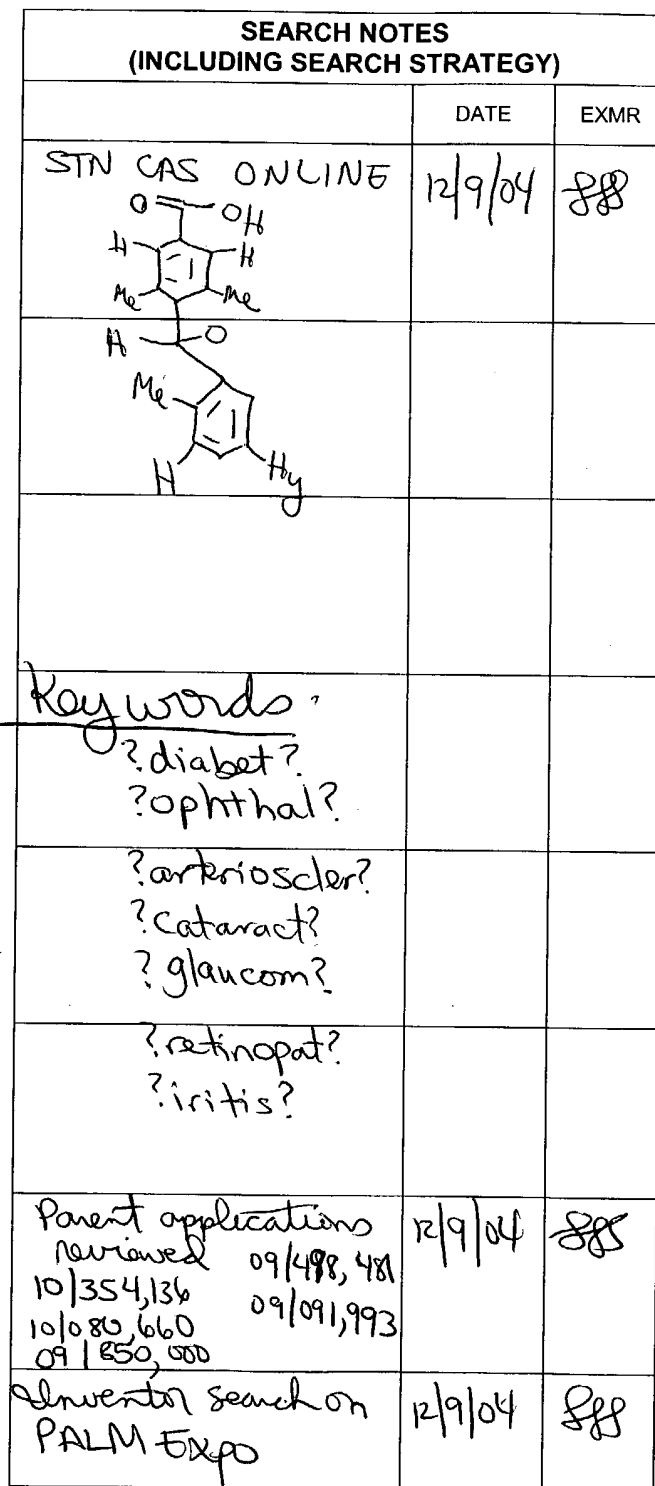 SEARCH NOTES
(INCLUDING SEARCH STRATEGY)
DATE EXMR
STN CAS ONLINE 12/9/04
O OH
H H
Me Me
H O
Me
H Hy
Keywords
?diabet?
?ophthal?
?arterioscler?
?cataract?
?glaucom?
?retinopat?
?iritis?
Parent applications 12/9/04
reviewed 09/498,481
10/354,136 09/091,993
10/080,660
09/850,000
Inventor search on 12/9/04
PALM EXPO